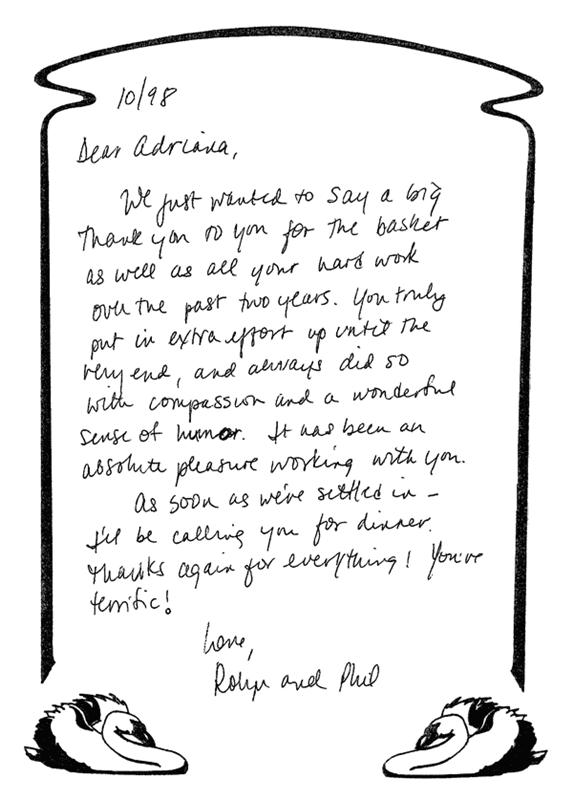 10/98
Dear Adriana,
We just wanted to say a big
Thank you to you for the basket
as well as all your hard work
over the past two years. You truly
put in extra effort up until the
very end, and always did so
with compassion and a wonderful
sense of humor. It has been an
absolute pleasure working with you.
As soon as we've settled in –
I'll be calling you for dinner.
Thanks again for everything! You're
terrific!
Love,
Robyn and Phil